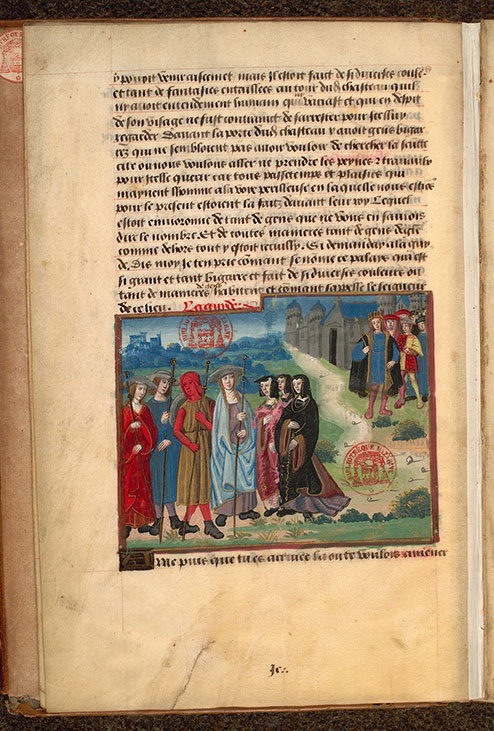 y povoit venir aiseinet mais il estoit fait de si diverses coule
et tant de fantasies entaillees au tour dud chasteau quil
ny avoit entendement humain que et qui en despit
de son visage ne fust contraint de sarrester pour
regarder Devant la porte dud chasteau y avoit gens bigar
rez qui ne sembloient pas avoir vouloir de chercher la saincte
cite ou nous voulons aller ne prendre les peynes & travaulx
pour querir car tous passetemps et plaisirs qui
maynent lhomme a la voye perilleuse en laquelle nous estiens
pour le present estoient la faitz devant leur roy Lequel
estoit environne de tant de gens que ne vous en sauroys
dire le nombre. Et de toutes manieres tant de gens deglise
comme dehors tout y estoit Si demanday a la guy
de. Dis moy je ten prie comant se nome ce palays qui est
si grant et tant bigarre et fait de si diverses couleurs ou
tant de manieres de gens habitent et comant sappelle le seigneur
de ce lieu. La guide
Ame puis que tu es arrivee la ou te vouloys amener